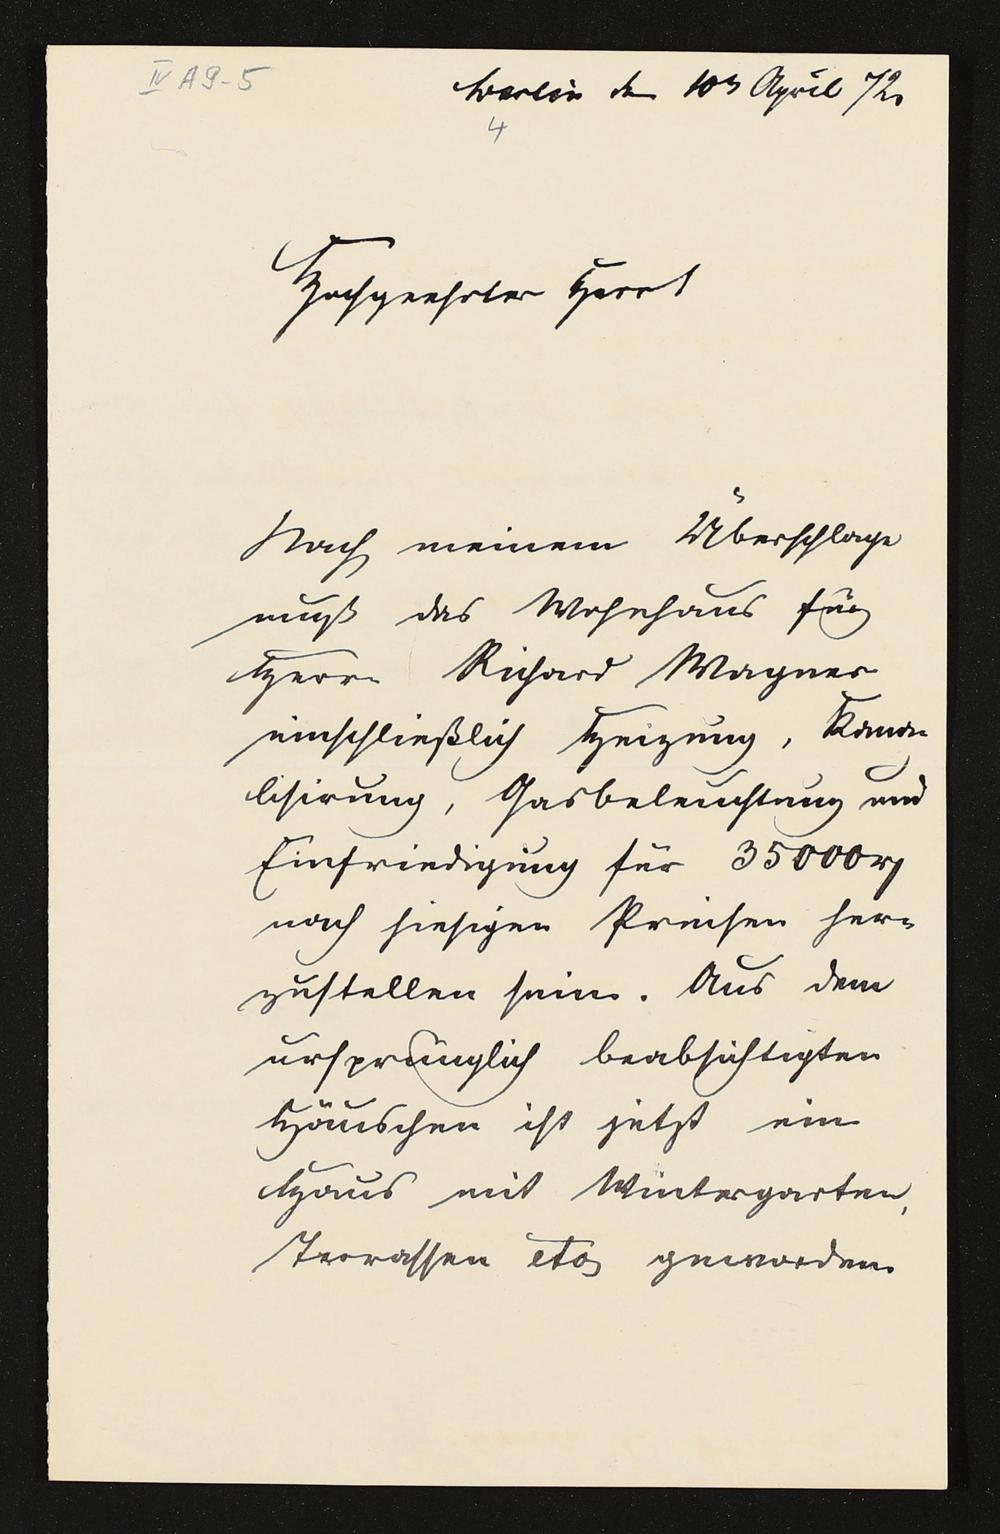 IV A 9-5
Berlin den 10n April 72.
4
Hochgeehrter Herr!
Nach meinem Überschlage
muß das Wohnhaus für
Herrn Richard Wagner
einschließlich Heizung, Kana-
lisirung, Gasbeleuchtung und
Einfriedigung für 35000 rg
nach hiesigen Preisen her-
zustellen sein. Aus dem
ursprünglich beabsichtigten
Häuschen ist jetzt ein
Haus mit Wintergarten,
Terrassen etc geworden.